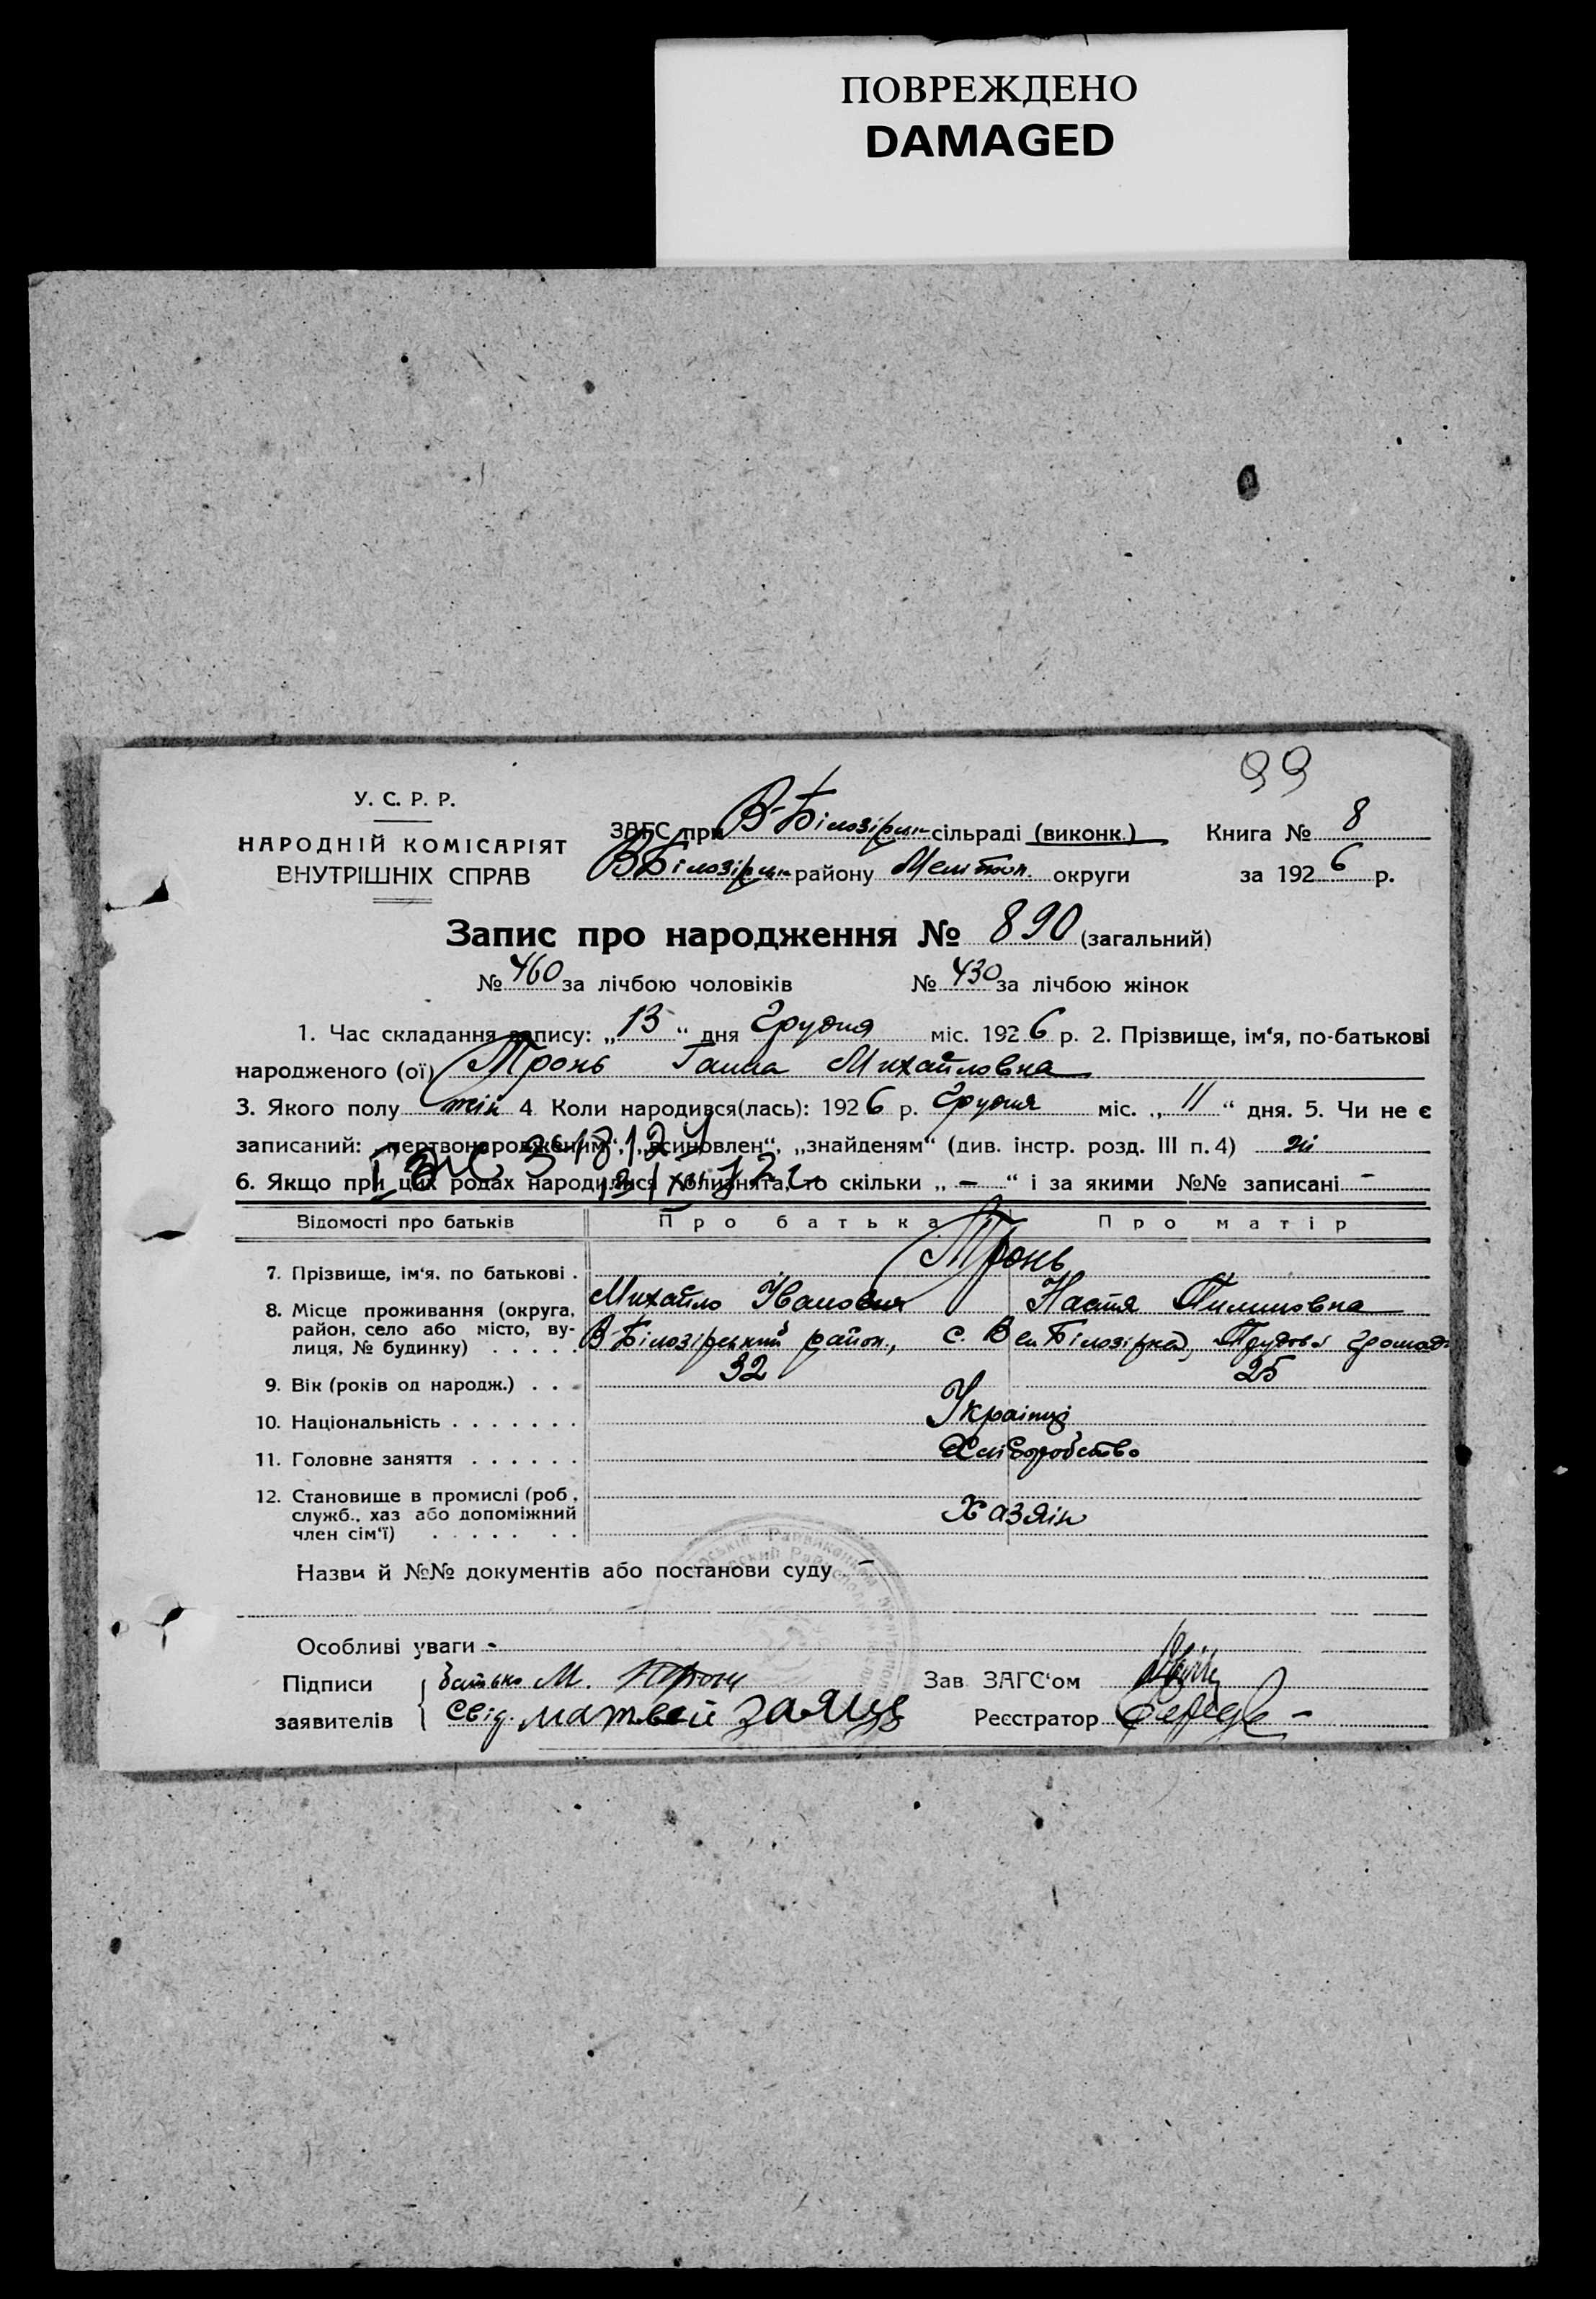 ПОВРЕЖДЕНО
DAMAGED
99
У. С. Р. Р.
НАРОДНІЙ КОМІСАРІЯТ
ВНУТРІШНІХ СПРАВ
ЗАГС при В-Білозірськ сільраді (виконк.) Книга № 8
ВБілозірськ району Мелітоп. округи за 1926 р.
Запис про народження № 890 (загальний)
№ 460 за лічбою чоловіків № 430 за лічбою жінок
1. Час складання запису: „13“ дня Грудня міс. 1926 р. 2. Прізвище, ім‘я, по-батькові
народженого (ої) Тронь Ганна Михайловна
3. Якого полу жін 4 Коли народився(лась): 1926 р. Грудня міс. „11“ дня. 5. Чи не є
записаний: „мертвонародженим“, „всиновлен“, „знайденям“ (див. інстр. розд. III п. 4) ні
6. Якщо при цих родах народилися близнята, то скільки „ – “ і за якими №№ записані –
Відомості про батьків Про батька Про матір
7. Прізвище, ім‘я, по батькові . Тронь
Михайло Іванович Настя Пилиповна
8. Місце проживання (округа, район, село або місто, вулиця, № будинку) . . . . . В-Білозірський район., с. Вел Білозірка, Трудова громад
9. Вік (років од народж.) . . . 32 25
10. Національність . . . . . . . Українці
11. Головне заняття . . . . . . Хліборобство
12. Становище в промислі (роб., служб., хаз або допоміжний член сім‘ї) . . . . . . . Хазяін
Назви й №№ документів або постанови суду –
Особливі уваги -
Підписи заявителів батько М. Тронь Зав ЗАГС‘ом
Свід. матвей заяць Реєстратор